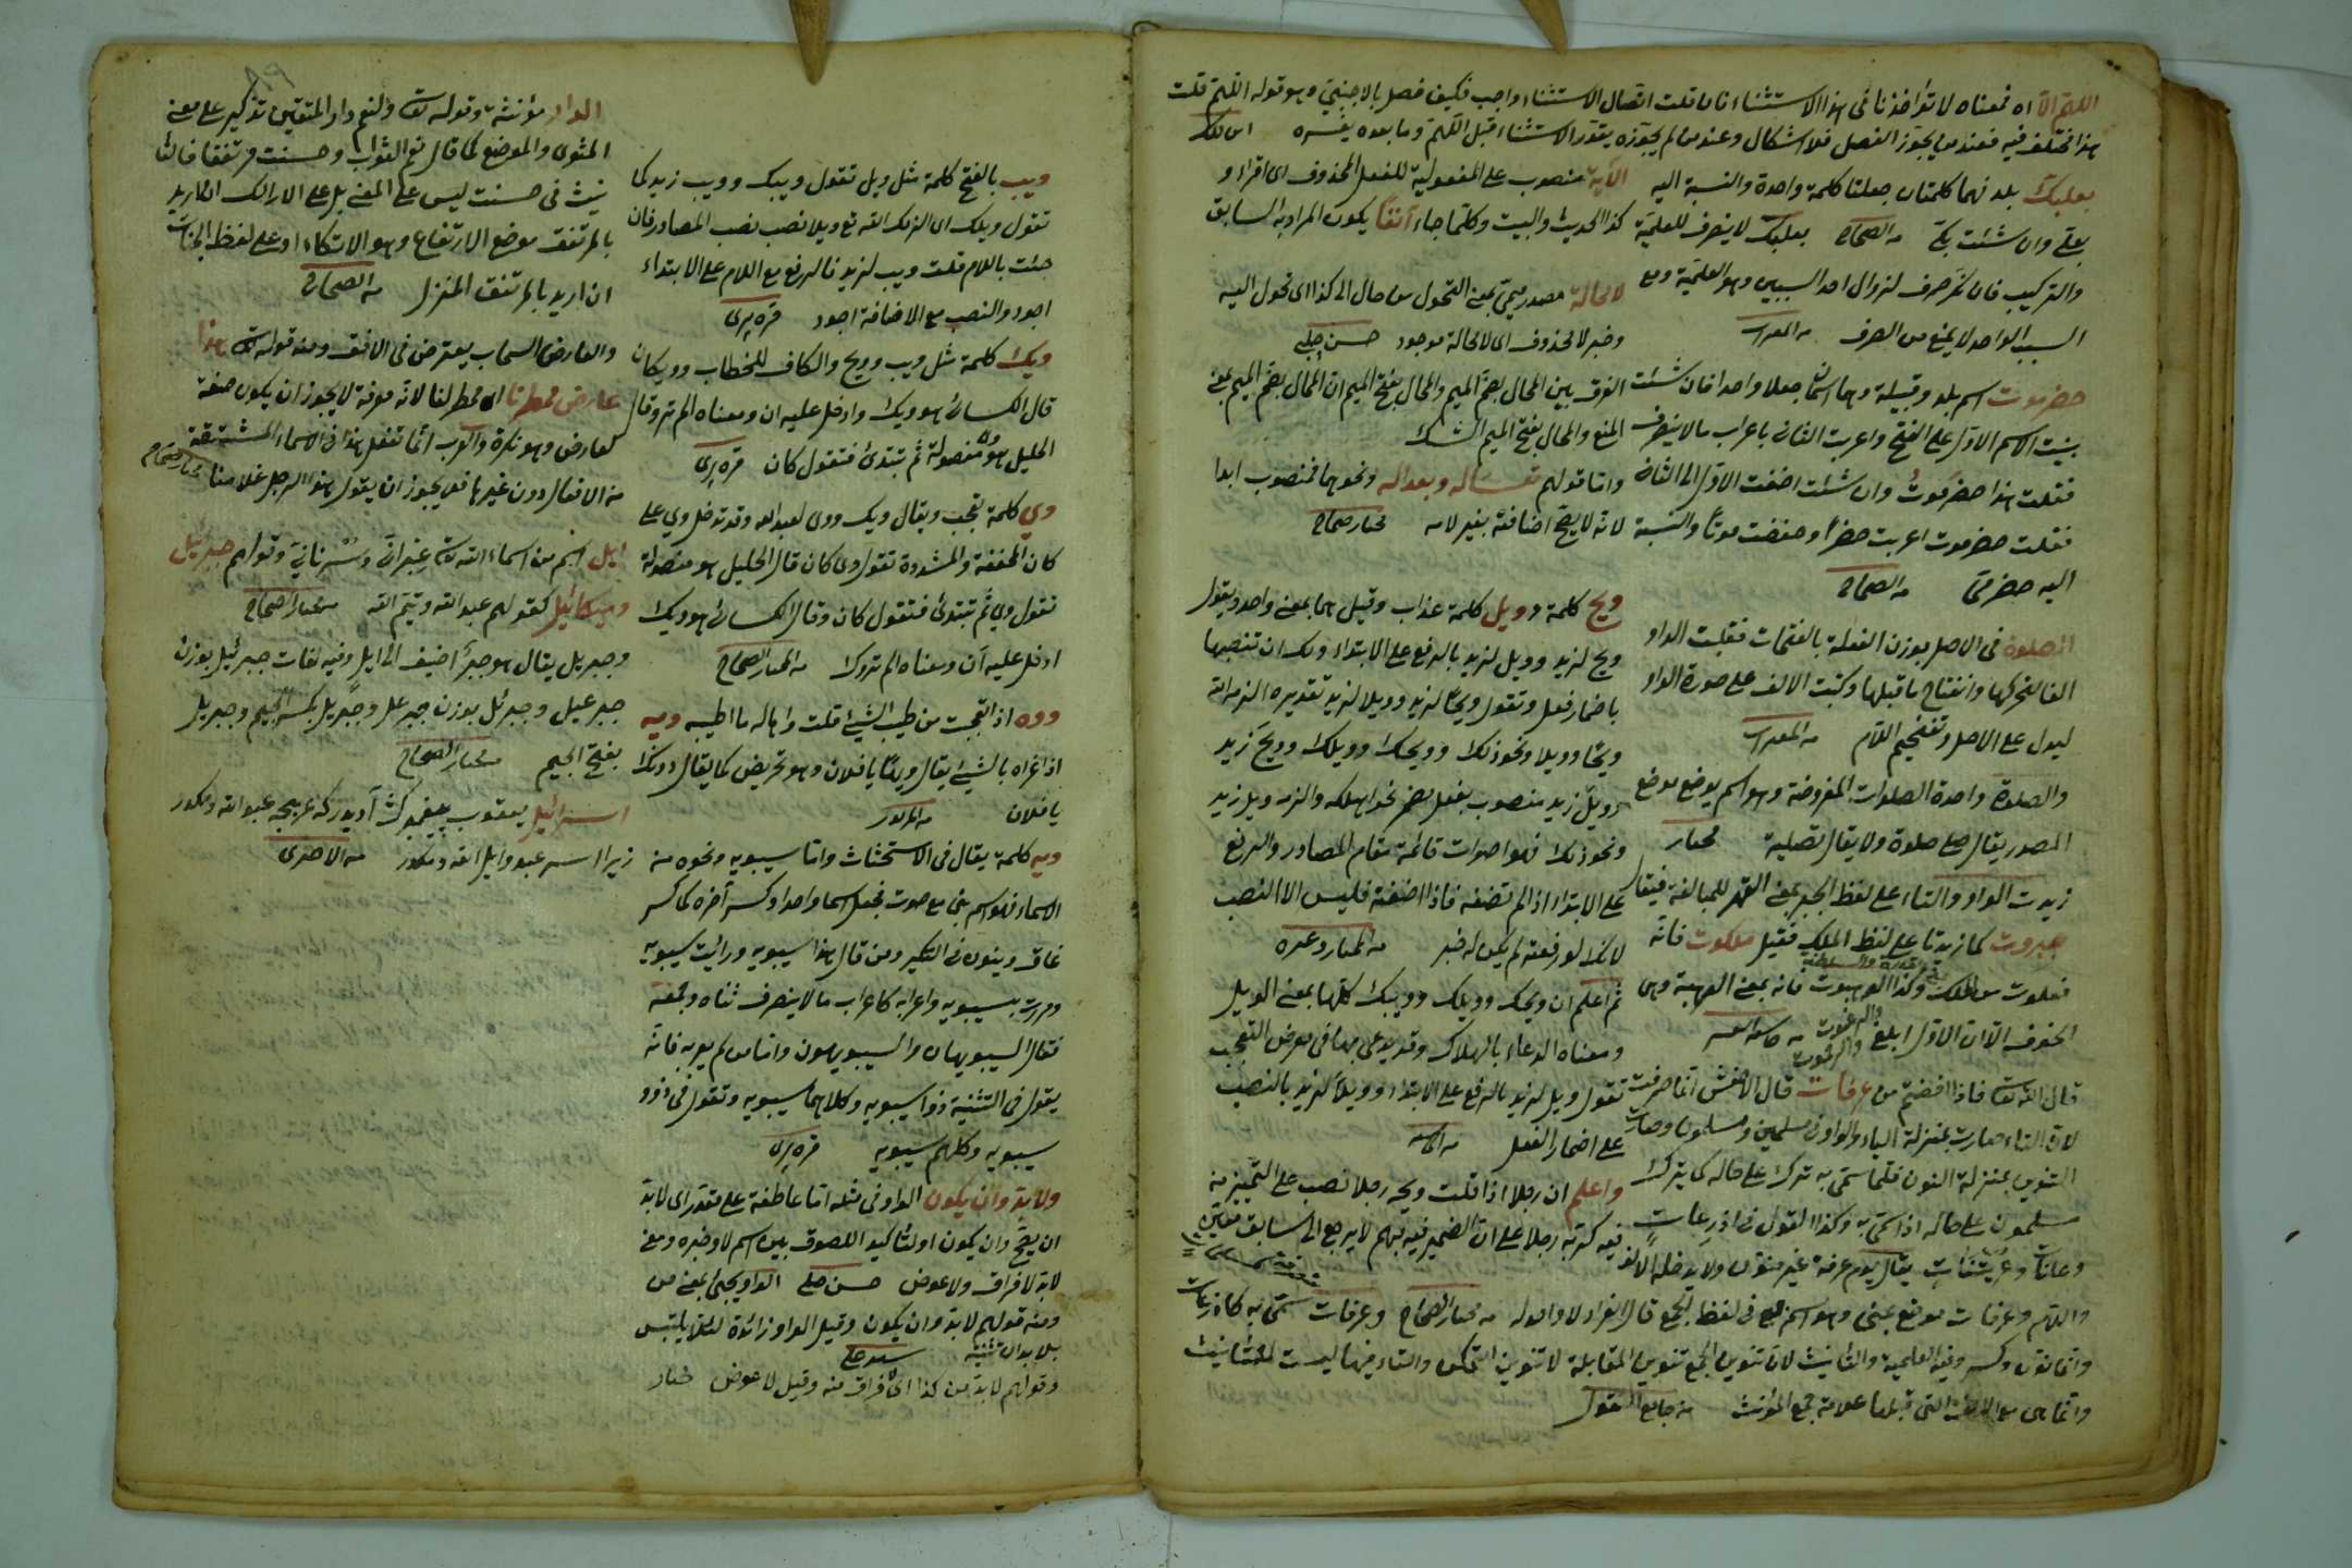 اللهم الا اه فمعناه لا تؤاخذنا في هذا الاستثناء فان قلت اتصال الاستثناء واجب فكيف فصل بالاجنبي وهو قوله اللهم قلت
هذا مختلف فيه فعند من يجوز الفصل فلا اشكال وعند من لم يجوزه يقدر الاستثناء قبل اللهم وما بعده يفسره
بعلبك بلد نهما كلمتان جعلتا كلمة واحدة والنسبة اليه
بعلي وان شئت بكي من الصحاح بعلبك لا ينصرف للعلمية
والتركيب فان نكر صرف لزوال احد السببين وهو العلمية ومع
السبب الواحد لا يمنع من الصرف
حضرموت اسم بلد وقبيلة وهما اسمان جعلا واحدا فان شئت
بنيت الاسم الاول على الفتح واعربت الثاني باعراب ما لا ينصرف
فقلت هذا حضرموت وان شئت اضفت الاول الى الثاني
فقلت حضرموت اعربت حضرا وخفضت موتا والنسبة
اليه حضرمي من الصحاح
الصلوة في الاصل بوزن الفعلة بالفتحات فقلبت الواو
الفا لتحركها وانفتاح ما قبلها وكتبت الالف على صورة الواو
ليدل على الاصل وتفخيم اللام
والصلوة واحدة الصلوات المفروضة وهو اسم يوضع موضع
المصدر يقال صلى صلوة ولا يقال تصلية مختار
زيدت الواو والتاء على لفظ الجبر بمعنى القهر للمبالغة فيقال
جبروت كما زيدتا على لفظ الملك فقيل ملكوت فانه
فعلوت من الملك وكذا الرهبوت فانه بمعنى الرهبة وهي
الخوف الا ان الاول ابلغ
قال الله تعالى فاذا افضتم من عرفات قال الاخفش انما صرفت
لان التاء صارت بمنزلة الياء والواو في مسلمين ومسلمون وصار
التنوين بمنزلة النون فلما سمي به ترك على حاله كما يترك
مسلمون على حاله اذا سمي به وكذا القول في اذرعات
وعانات وعريتنات يقال يوم عرفة غير منون ولا يدخله الالف
واللام وعرفات موضع بمنى وهو اسم في لفظ الجمع قال الفراء لا واحد له من مختار الصحاح وعرفات سمي به كاذرعات
وانما نون وكسر وفيه العلمية والتانيث لان تنوين الجمع تنوين المقابلة لا تنوين التمكن والتاء فيها ليست للتانيث
وانما هي مع الالف التي قبلها علامة جمع المؤنث
الآية منصوب على المفعولية للفعل المحذوف اى اقراء و
كذا الحديث والبيت وكلما جاء آنفا يكون المراد به السابق
لا محالة مصدر ميمي بمعنى التحول من حال الى كذا اى تحول اليه
وخبر لا محذوف اى لا محالة موجود حسن چلبي
الفرق بين المحال بضم الميم والمحال بفتح الميم ان المحال بضم الميم بمعنى
المنع والمحال بفتح الميم الشك
واما قولهم تعسا له وبعدا له ونحوهما فمنصوب ابدا
لانه لا يصح اضافته بغير لام مختار صحاح
ويح كلمة وويل كلمة عذاب وقيل هما بمعنى واحد ويقول
ويح لزيد وويل لزيد بالرفع على الابتداء ولك ان تنصبها
باضمار فعل وتقول ويحا لزيد وويلا لزيد تقديره الزمه الله
ويحا وويلا ونحو ذلك وويحك وويلك وويح زيد
وويل زيد منصوب بفعل مضمر نحو اهلكه والزمه ويل زيد
ونحو ذلك فهو اصوات قائمة مقام المصادر والرفع
على الابتداء اذا لم تضفه فاذا اضفته فليس الا النصب
لانك لو رفعته لم يكن له خبر من المختار وغيره
ثم اعلم ان ويحك وويلك وويبك كلها بمعنى الويل
ومعناه الدعاء بالهلاك وقد يدعى بها في معرض التعجب
تقول ويل لزيد بالرفع على الابتداء وويلا لزيد بالنصب
على اضمار الفعل
واعلم ان رجلا اذا قلت ويحه رجلا نصب على التمييز منه
فيه كربه رجلا على ان الضمير فيه مبهم لا يرجع الى سابق
ويب بالفتح كلمة مثل ويل تقول ويبك وويب زيد كما
تقول ويلك اى الزمك الله تع ويلا نصب نصب المصادر فان
جئت باللام قلت ويب لزيد فالرفع مع اللام على الابتداء
اجود والنصب مع الاضافة اجود قره پرى
ويك كلمة مثل ويب وويح والكاف للخطاب وويكان
قال الكسائى هو ويك وادخل عليه ان ومعناه الم تر وقال
الخليل هو مفصولة ثم تبتدئ فتقول كان قره پرى
وي كلمة تعجب ويقال ويك ووى لعبد الله وقد تدخل وي على
كان المخففة والمشددة تقول وى كان قال الخليل هو مفصولة
تقول وي ثم تبتدئ فتقول كان وقال الكسائى هو ويك
ادخل عليه ان ومعناه الم تروك من المختار الصحاح
ووه اذا تعجبت من طيب الشيئ قلت واها له ما اطيبه وويه
اذا غراه بالشيئ يقال ويها يا فلان وهو تحريض كما يقال دونك
يا فلان
ويه كلمة يقال في الاستحثاث واما سيبويه ونحوه من
الاسماء فهو اسم بني مع صوت فجعل اسما واحدا وكسر آخره كما كسر
غاق وينون في التنكير ومن قال هذا سيبويه ورايت سيبويه
ومررت بسيبويه واعرابه كاعراب ما لا ينصرف ثناه وجمعه
فقال السيبويهان والسيبويهون واما من لم يعربه فانه
يقول في التثنية ذوا سيبويه وكلاهما سيبويه وتقول في ذوو
سيبويه وكلهم سيبويه قره پرى
ولا بد وان يكون الواو في مثله اما عاطفة على مقدر اى لا بد
ان يصح وان يكون او لتاكيد اللصوق بين اسم لا وخبره ومعنى
لا بد لا فراق ولا عوض حسن چلبي الواو يجئ بمعنى من
ومنه قولهم لا بد وان يكون وقيل الواو زائدة لئلا يلتبس
بلا بدان تثنية
وقولهم لا بد من كذا اى لا فراق منه وقيل لا عوض
الدار مؤنثة وقوله تع ولنعم دار المتقين تذكير على معنى
المثوى والموضع كما قال نعم الثواب وحسنت مرتفقا فالتا
نيث في حسنت ليس على المعنى بل على الارائك ان اريد
بالمرتفق موضع الارتفاع وهو الاتكاء او على لفظ الجنات
ان اريد بالمرتفق المنزل من الصحاح
والعارض السحاب يعترض في الافق ومنه قوله تع هذا
عارض ممطرنا اى ممطر لنا لانه معرفة لا يجوز ان يكون صفة
لعارض وهو نكرة والعرب انما تفعل هذا في الاسماء المشتقة
من الافعال دون غيرها فلا يجوز ان يقول هذا الرجل غلامنا مختار صحاح
ايل اسم من اسماء الله تع عبرانى وسريانى وقولهم جبرئيل
وميكائيل كقولهم عبد الله وتيم الله مختار الصحاح
وجبريل يقال هو جبر اضيف الى ايل وفيه لغات جبرئيل بوزن
جبرعيل وجبرئل بوزن جبرعل وجبريل بكسر الجيم وجبريل
بفتح الجيم مختار الصحاح
اسرائيل يعقوب پيغمبرك آديدر كه عربيجه عبد الله ديمكدر
زيرا اسر عبد وايل الله ديمكدر من الاخترى